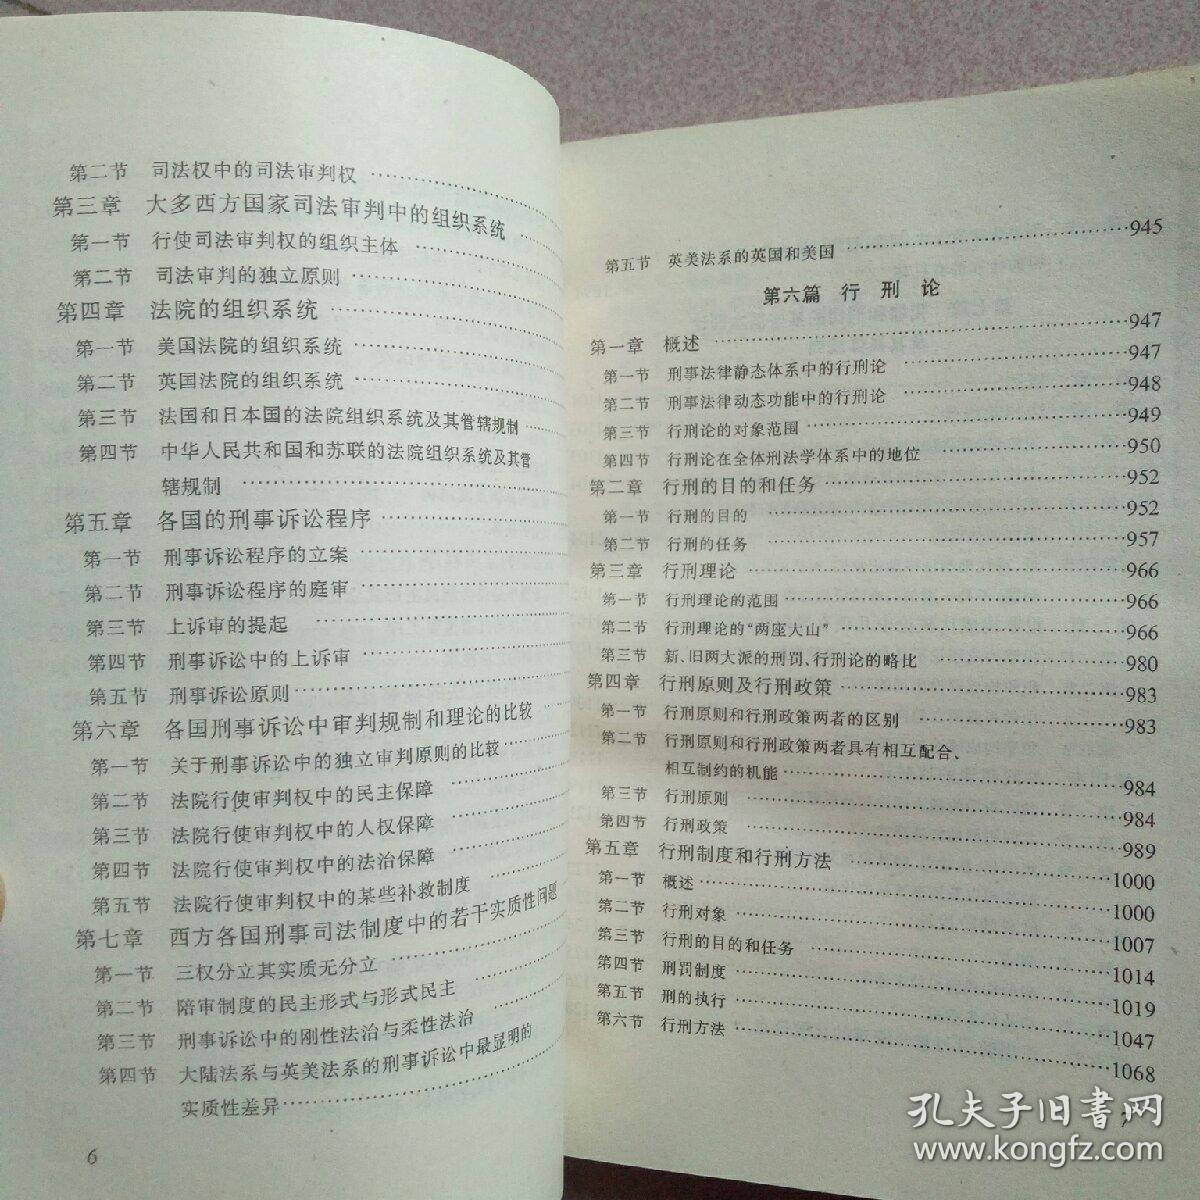 第二节 司法权中的司法审判权
第三章 大多西方国家司法审判中的组织系统
第一节 行使司法审判权的组织主体
第二节 司法审判的独立原则
第四章 法院的组织系统
第一节 美国法院的组织系统
第二节 英国法院的组织系统
第三节 法国和日本国的法院组织系统及其管辖规制
第四节 中华人民共和国和苏联的法院组织系统及其管
辖规制
第五章 各国的刑事诉讼程序
第一节 刑事诉讼程序的立案
第二节 刑事诉讼程序的庭审
第三节 上诉审的提起
第四节 刑事诉讼中的上诉审
第五节 刑事诉讼原则
第六章 各国刑事诉讼中审判规制和理论的比较
第一节 关于刑事诉讼中的独立审判原则的比较
第二节 法院行使审判权中的民主保障
第三节 法院行使审判权中的人权保障
第四节 法院行使审判权中的法治保障
第五节 法院行使审判权中的某些补救制度
第七章 西方各国刑事司法制度中的若干实质性问题
第一节 三权分立其实质无分立
第二节 陪审制度的民主形式与形式民主
第三节 刑事诉讼中的刚性法治与柔性法治
第四节 大陆法系与英美法系的刑事诉讼中最显明的
实质性差异
6
第五节 英美法系的英国和美国 945
第六篇 行刑论
第一章 概述 947
第一节 刑事法律静态体系中的行刑论 947
第二节 刑事法律动态功能中的行刑论 948
第三节 行刑论的对象范围 949
第四节 行刑论在全体刑法学体系中的地位 950
第二章 行刑的目的和任务 952
第一节 行刑的目的 952
第二节 行刑的任务 957
第三章 行刑理论 966
第一节 行刑理论的范围 966
第二节 行刑理论的“两座大山” 966
第三节 新、旧两大派的刑罚、行刑论的略比 980
第四章 行刑原则及行刑政策 983
第一节 行刑原则和行刑政策两者的区别 983
第二节 行刑原则和行刑政策两者具有相互配合、
相互制约的机能 984
第三节 行刑原则 984
第四节 行刑政策 989
第五章 行刑制度和行刑方法 1000
第一节 概述 1000
第二节 行刑对象 1007
第三节 行刑的目的和任务 1014
第四节 刑罚制度 1019
第五节 刑的执行 1047
第六节 行刑方法 1068
孔夫子旧书网
www.kongfz.com